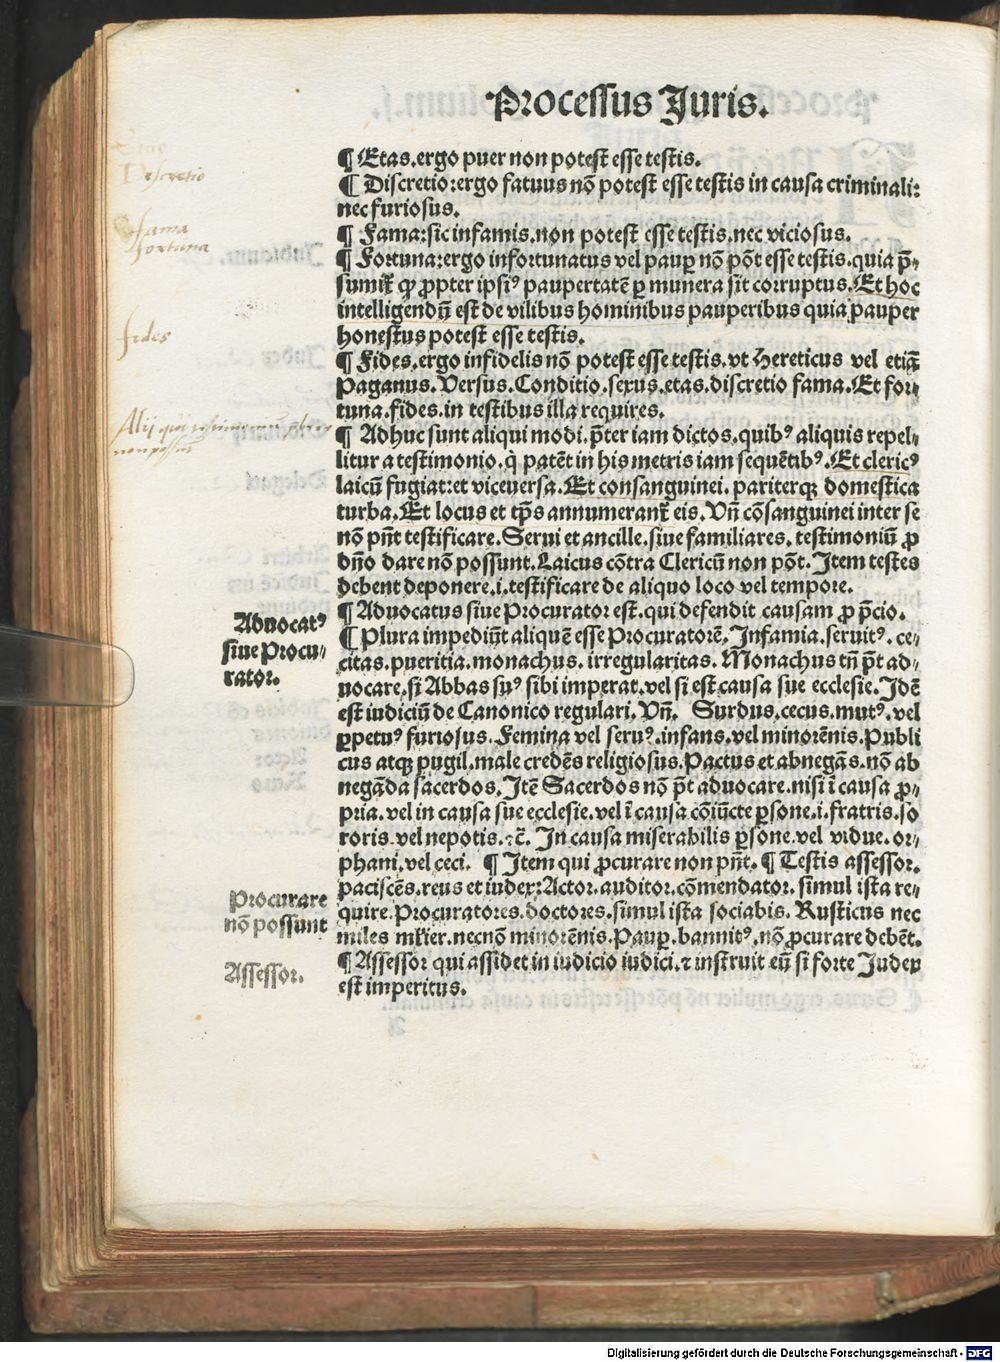 Processus Juris.
¶ Etas.ergo puer non potest esse testis.
¶ Discretio:ergo fatuus nō potest esse testis in causa criminali:
nec furiosus.
¶ Fama:sic infamis.non potest esse testis.nec viciosus.
¶ Fortuna:ergo infortunatus vel paup̲ nō pōt esse testis.quia p̄-
sumit᷑ ꝙ ꝓpter ipsiꝰ paupertatē ꝑ munera sit corruptus.Et hoc
intelligendū est de vilibus hominibus pauperibus quia pauper
honestus potest esse testis.
¶ Fides.ergo infidelis nō potest esse testis.vt Hereticus vel etiā
Paganus.Versus.Conditio.sexus.etas.discretio fama.Et for-
tuna.fides.in testibus illa requires.
¶ Adhuc sunt aliqui modi.p̄ter iam dictos.quibꝰ aliquis repel-
litur a testimonio.q̇ patēt in his metris iam sequētibꝰ.Et clericꝰ
laicū fugiat:et viceversa.Et consanguinei.pariterqꝫ domestica
turba.Et locus et tp̄s annumerant᷑ eis.Vn̄ cōsanguinei inter se
nō pn̄t testificare.Serui et ancille.siue familiares.testimoniū ꝓ
dn̄o dare nō possunt.Laicus cōtra Clericū non pōt.Item testes
debent deponere.i.testificare de aliquo loco vel tempore.
¶ Aduocatus siue Procurator est.qui defendit causam ꝓ p̄cio.
¶ Plura impediūt aliquē esse Procuratorē.Infamia.seruitꝰ.ce-
citas.pueritia.monachus.irregularitas.Monachus tn̄ p̄t ad-
uocare.si Abbas suꝰ sibi imperat.vel si est causa sue ecclesie.Idē
est iudiciū de Canonico regulari.Vn̄. Surdus.cecus.mutꝰ.vel
ꝑpetuꝰ furiosus.Femina vel seruꝰ.infans.vel minorēnis.Publi
cus atqꝫ pugil.male credēs religiosus.Pactus et abnegās.nō ab
negāda sacerdos.Itē Sacerdos nō p̄t aduocare.nisi ī causa ꝓ-
pria.vel in causa sue ecclesie.vel ī causa cōiūcte ꝑsone.i.fratris.so
roris.vel nepotis.⁊c̄.In causa miserabilis ꝑsone.vel vidue.or-
phani.vel ceci. ¶ Item qui ꝓcurare non pn̄t.¶ Testis assessor.
paciscēs.reus et iudex:Actor.auditor.cōmendator.simul ista re-
quire.Procuratores.doctores.simul ista sociabis.Rusticus nec
miles mĺier.necnō minorēnis.Pauꝑ.bannitꝰ.nō ꝓcurare debēt.
¶ Assessor qui assidet in iudicio iudici.⁊ instruit eū si forte Judex
est imperitus.
Discretio
fama
fortuna
fides
Alij qui
non possunt
Aduocatꝰ
siue Procu-
rator.
Procurare
nō possunt
Assessor.
Digitalisierung gefördert durch die Deutsche Forschungsgemeinschaft - DFG